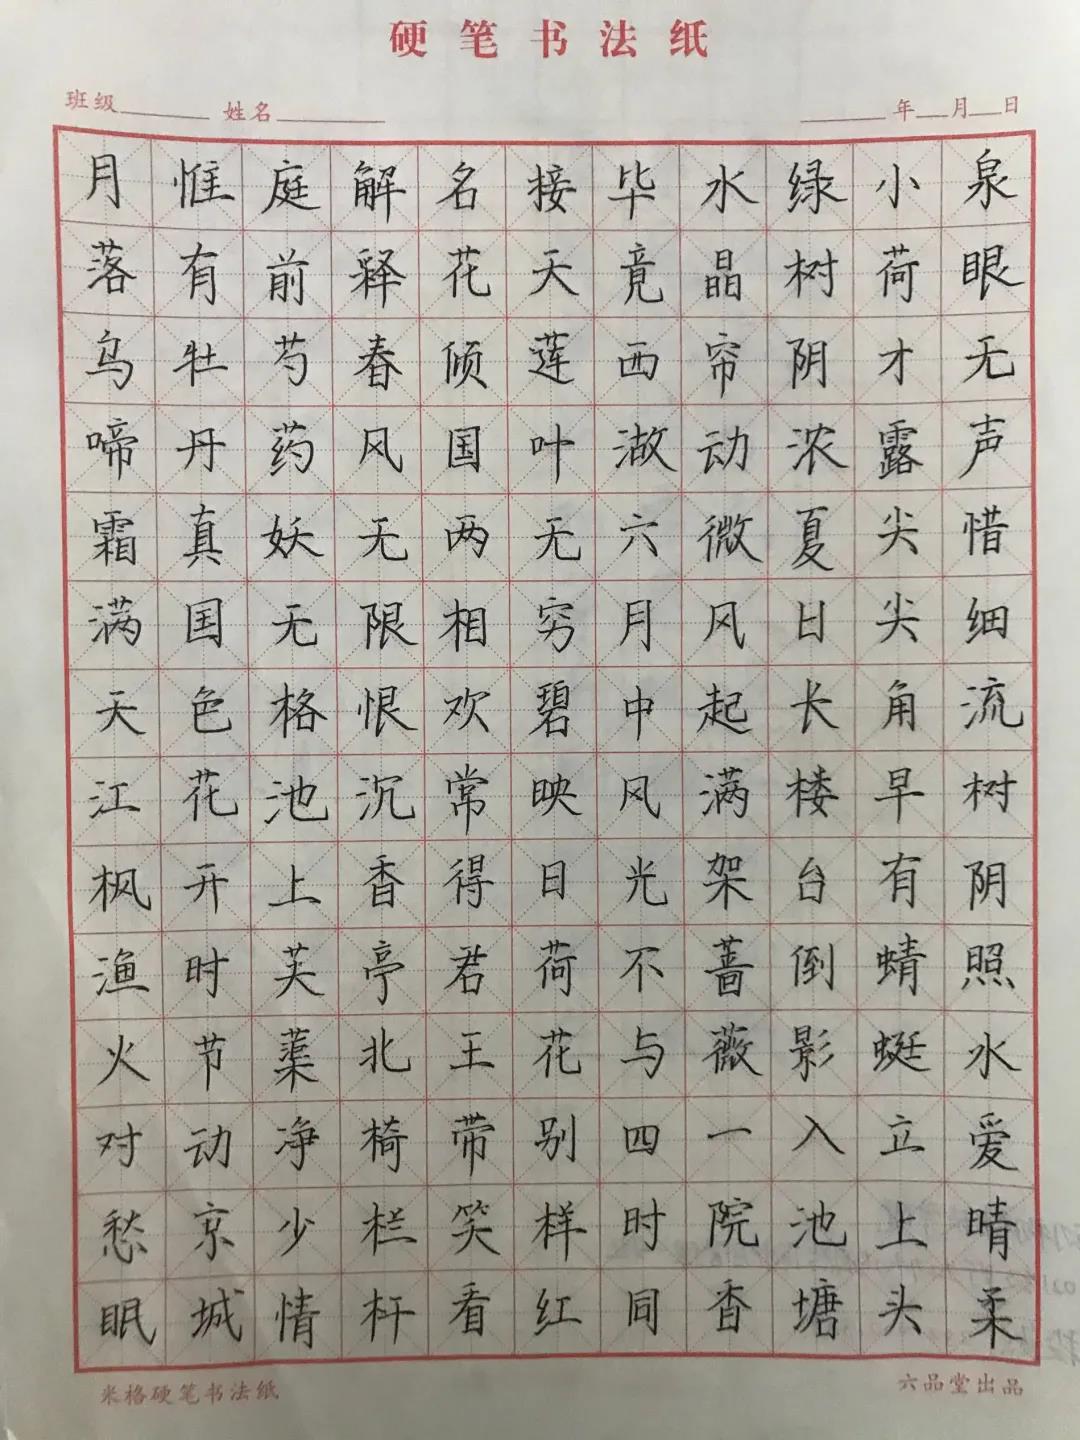 硬笔书法纸
班级 姓名 年 月 日
泉眼无声惜细流树阴照水爱晴柔
小荷才露尖尖角早有蜻蜓立上头
绿树阴浓夏日长楼台倒影入池塘
水晶帘动微风起满架蔷薇一院香
毕竟西湖六月中风光不与四时同
接天莲叶无穷碧映日荷花别样红
名花倾国两相欢常得君王带笑看
解释春风无限恨沉香亭北椅栏杆
庭前芍药妖无格池上芙蕖净少情
惟有牡丹真国色花开时节动京城
月落乌啼霜满天江枫渔火对愁眠
米格硬笔书法纸 六品堂出品